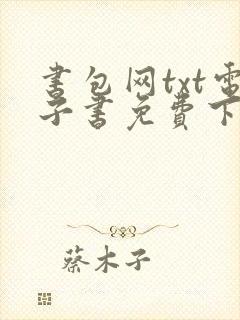 书包网txt电
子书免费下
蔡木子